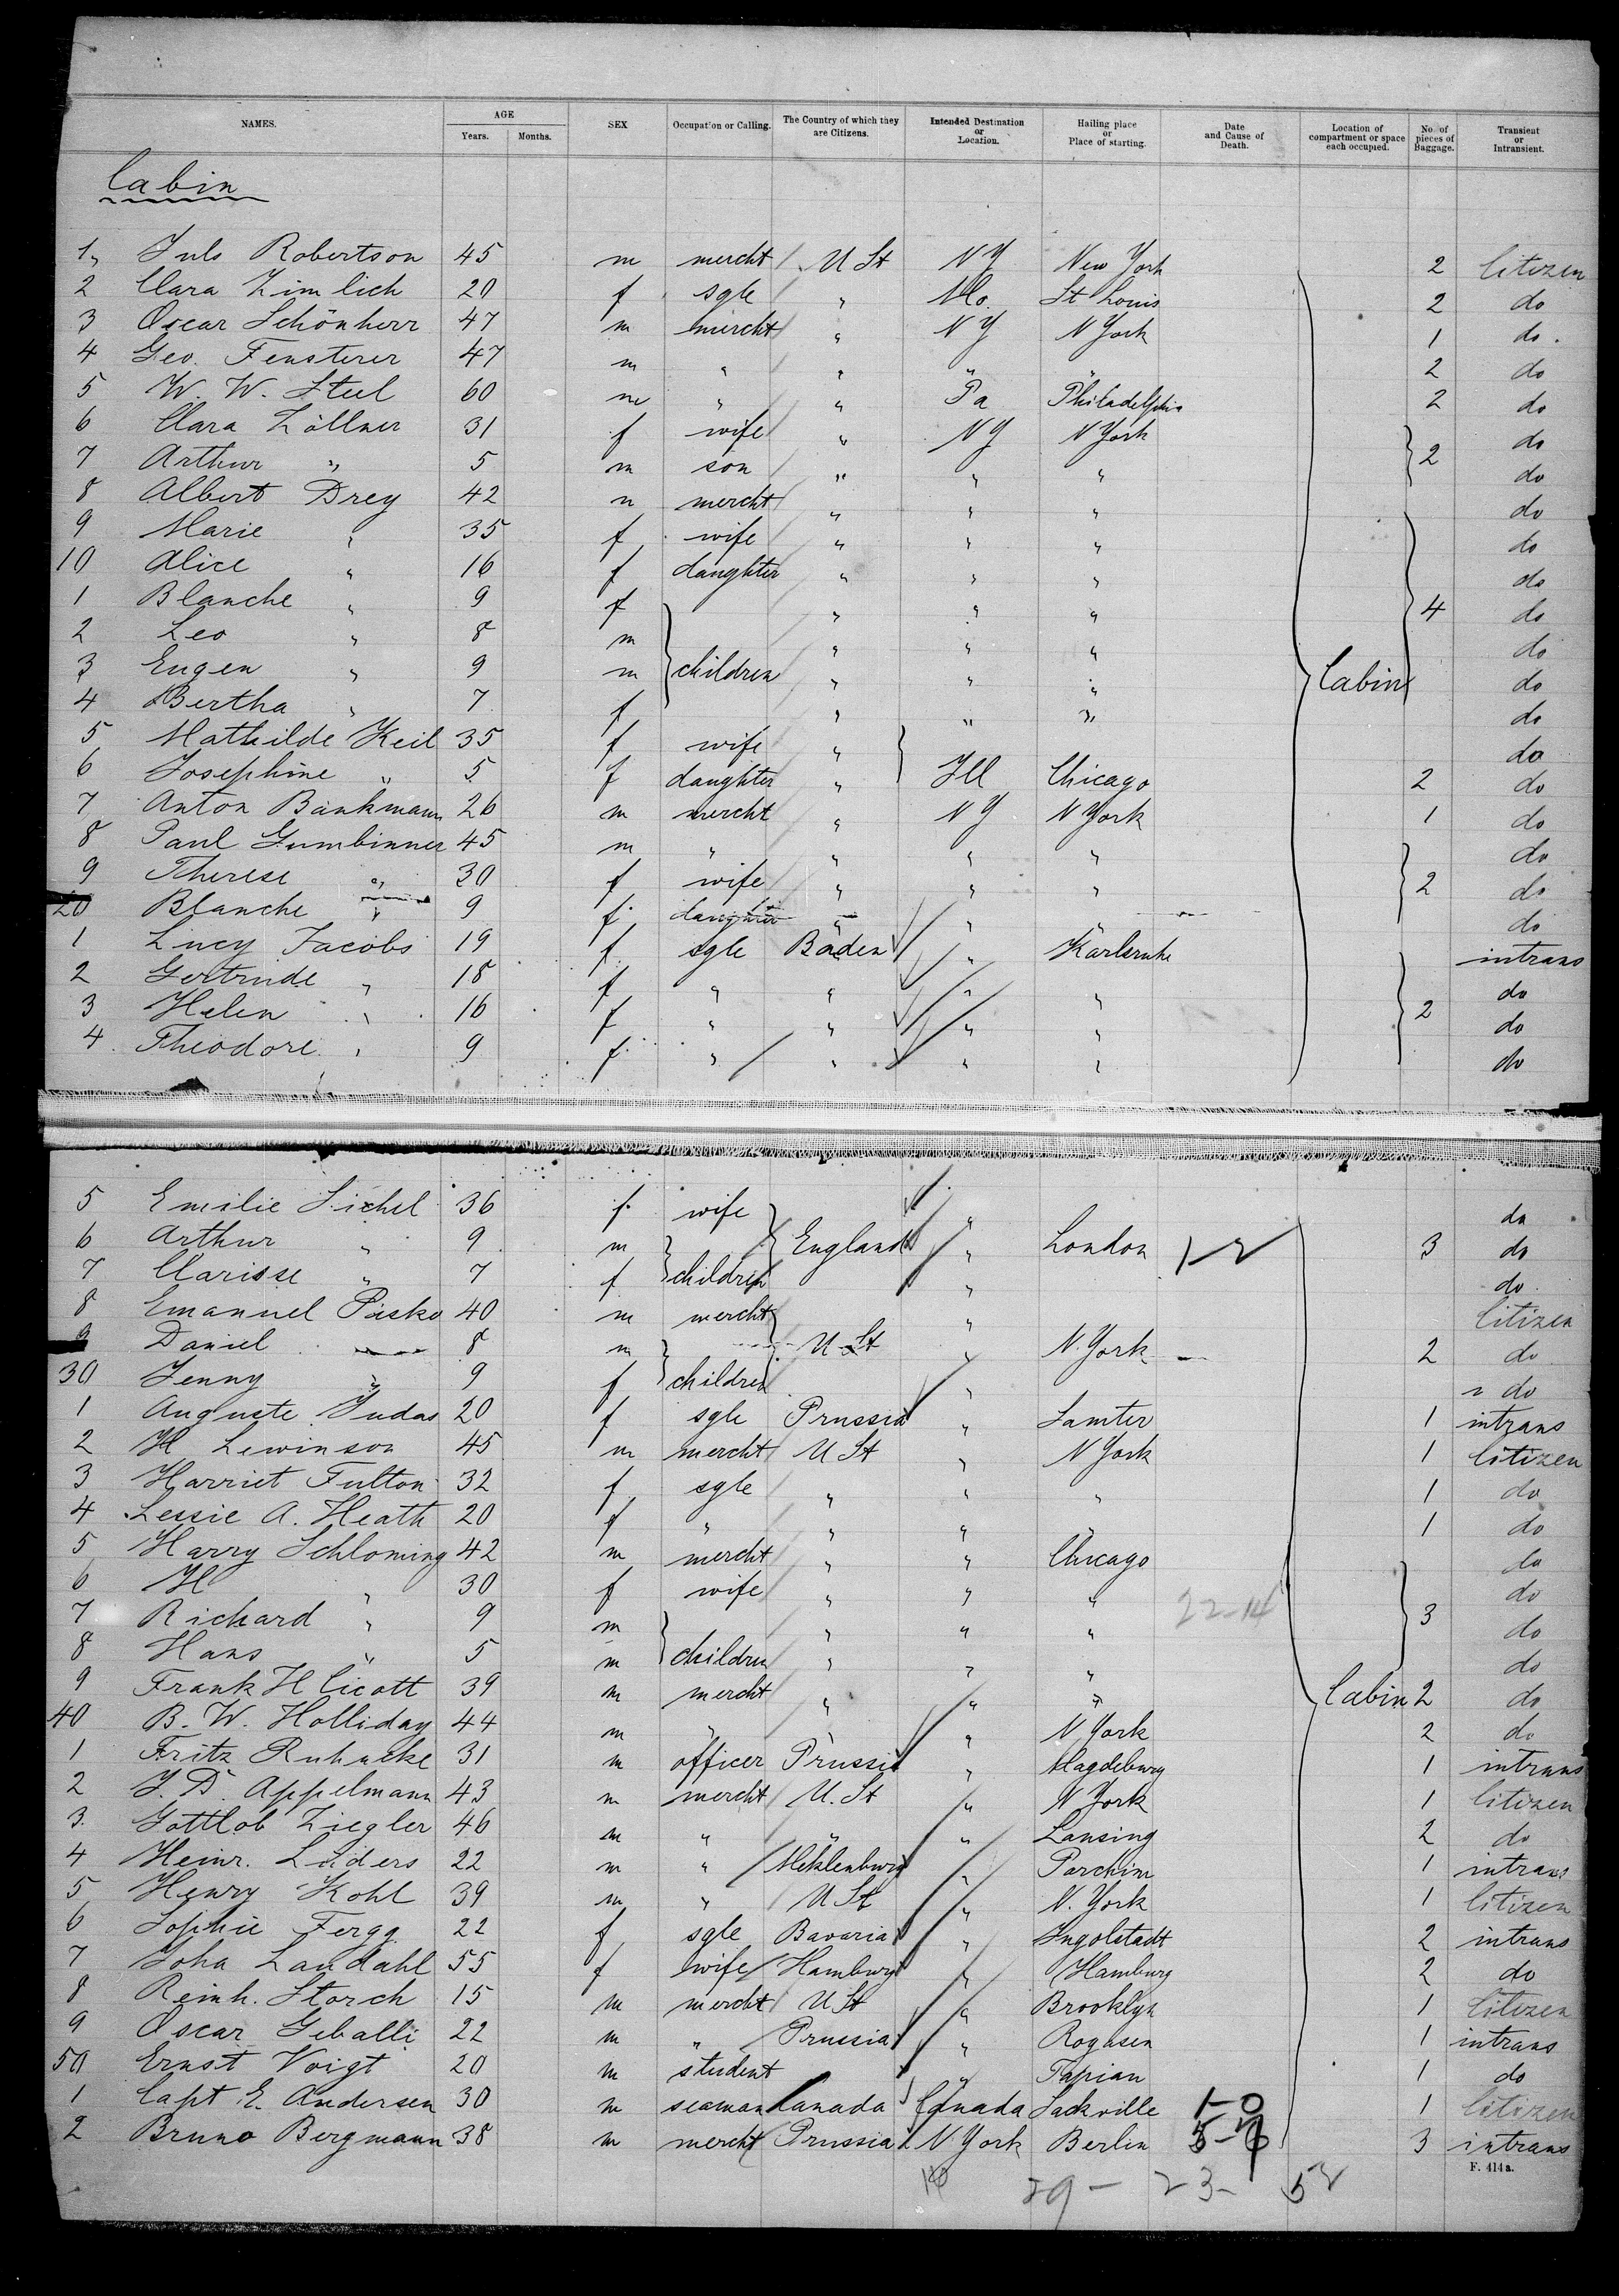 NAMES. AGE Years. Months. SEX Occupation or Calling. The Country of which they are Citizens. Intended Destination or Location. Hailing place or Place of starting. Date and Cause of Death. Location of compartment or space each occupied. No. of pieces of Baggage. Transient or Intransient.
Cabin
1, Juls Robertson 45 m mercht U St N Y New York 2 Citizen
2 Clara Zimlich 20 f sgle " Mo. St Louis 2 do
3 Oscar Schönherr 47 m mercht " N Y N York 1 do.
4 Geo. Fensterer 47 m " " " " 2 do
5 W. W. Steel 60 m " " Pa Philadelphia 2 do
6 Clara Zöllner 31 f wife " N Y N York do
7 Arthur " 5 m son " " " 2 do
8 Albert Drey 42 m mercht " " " do
9 Marie " 35 f wife " " " do
10 Alice " 16 f daughter " " " do
1 Blanche " 9 f " " " 4 do
2 Leo " 8 m " " " do
3 Eugen " 9 m children " " " Cabin do
4 Bertha " 7 f " " " do
5 Mathilde Keil 35 f wife " do
6 Josephine " 5 f daughter " Ill Chicago 2 do
7 Anton Bankmann 26 m mercht " N Y N York 1 do
8 Paul Gumbinner 45 m " " " " do
9 Therese " 30 f wife " " " 2 do
20 Blanche " 9 f. daughter " " " do
1 Lucy Jacobs 19 f sgle Baden " Karlsruhe intrans
2 Gertrude " 18 f " " " " do
3 Helen " 16 f " " " " 2 do
4. Theodore " 9 f. " " " " do
5 Emilie Sichel 36 f. wife " do
6 Arthur " 9 m England " London 3 do
7 Clarisse " 7 f children " do.
8 Emanuel Pisko 40 m mercht " Citizen
9 Daniel 8 m U St " N. York 2 do
30 Jenny " 9 f children " do
1 Auguste Judas 20 f sgle Prussia " Samter 1 intrans
2 H Lewinson 45 m mercht U St " N York 1 Citizen
3 Harriet Fulton 32 f sgle " " " 1 do
4 Lessie A. Heath 20 f " " " " 1 do
5 Harry Schloming 42 m mercht " " Chicago do
6 H " 30 f wife " " " 22-14 do
7 Richard " 9 m " " " 3 do
8 Hans " 5 m children " " " do
9 Frank H Cicott 39 m mercht " " " Cabin 2 do
40 B. W. Holliday 44 m " " " N York 2 do
1 Fritz Ruhacke 31 m officer Prussia " Magdeburg 1 intrans
2 J. D. Appelmann 43 m mercht U. St " N York 1 Citizen
3. Gottlob Ziegler 46 m " " " Lansing 2 do
4 Heinr. Lüders 22 m " Meklenburg " Parchim 1 intrans
5 Henry Kohl 39 m " U St " N. York 1 Citizen
6 Sophie Fergg 22 f sgle Bavaria " Ingolstadt 2 intrans
7 Joha Landahl 55 f wife Hamburg " Hamburg 2 do
8 Reinh. Storch 15 m mercht U St " Brooklyn 1 Citizen
9 Oscar Geballe 22 m " Prussia " Rogasen 1 intrans
50 Ernst Voigt 20 m student " Tapiau 1 do
1 Capt E. Andersen 30 m seaman Canada Canada Sackville 1-0 1 Citizen
2 Bruno Bergmann 38 m mercht Prussia N York Berlin 3 intrans
F. 414 a.
29 - 23 - 52